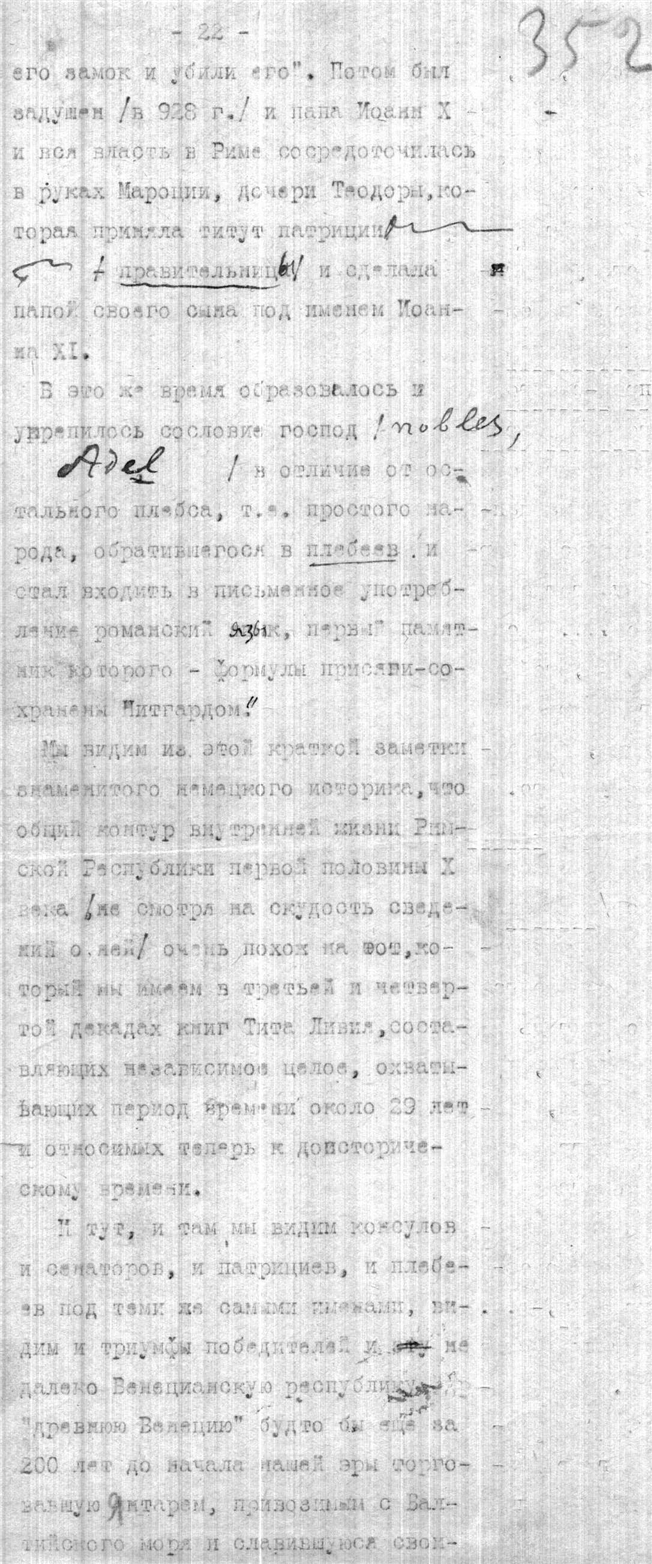 - 22 -
352
его замок и убили его". Потом был
задушен /в 928 г./ и папа Иоанн X
и вся власть в Риме сосредоточилась
в руках Мароции, дочери Теодоры,ко-
торая приняла титут патриции
/ правительницы/ и сделала
папой своего сына под именем Иоан-
на XI.
В это же время образовалось и
укрепилось сословие господ /nobles,
Adel / в отличие от ос-
тального плебса, т.е. простого на-
рода, обратившегося в плебеев и
стал входить в письменное употреб-
ление романский язык, первый памят-
ник которого - формулы присяги-со-
хранены Нитгардом."
Мы видим из этой краткой заметки
знаменитого немецкого историка,что
общий контур внутренней жизни Рим-
ской Республики первой половины X
века /не смотря на скудость сведе-
ний о ней/ очень похож на тот,ко-
торый мы имеем в третьей и четвер-
той декадах книг Тита Ливия,соста-
вляющих независимое целое, охваты-
вающих период времени около 29 лет
и относимых теперь к доисториче-
скому времени.
И тут, и там мы видим консулов
и сенаторов, и патрициев, и плебе-
ев под теми же самыми именами, ви-
дим и триумфы победителей и не
далеко Венецианскую республику
"древнюю Венецию" будто бы еще за
200 лет до начала нашей эры торго-
вавшую Янтарем, привозимым с Бал-
тийского моря и славившуюся свои-